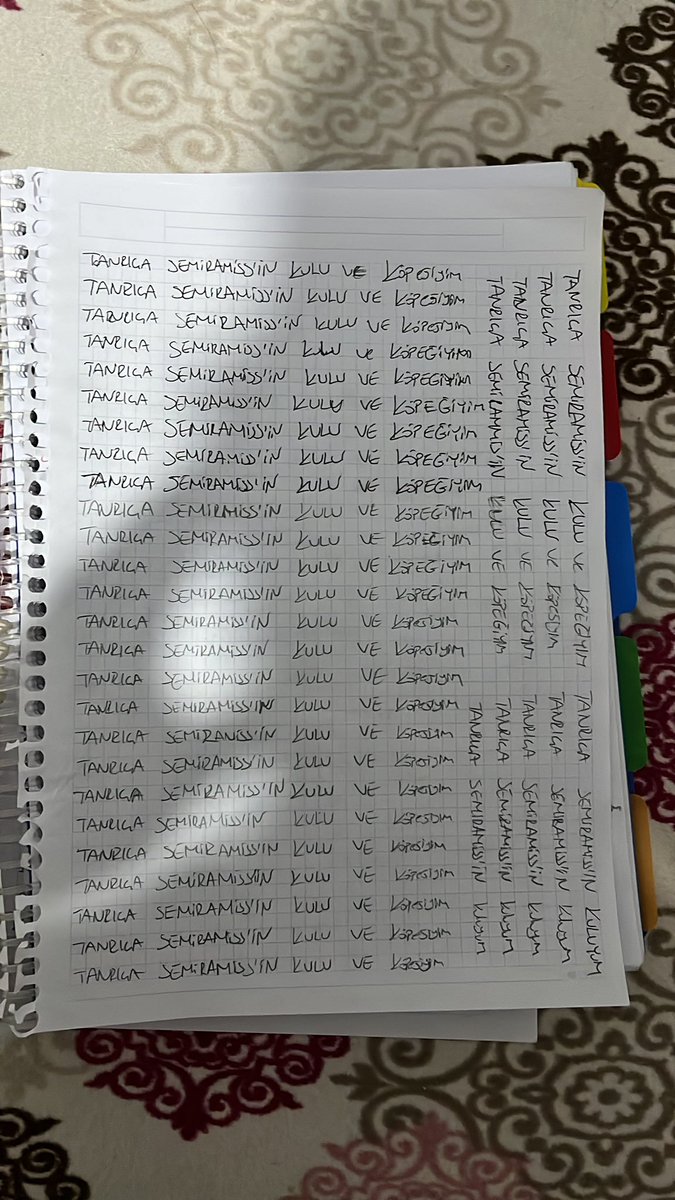 TANRIÇA SEMİRAMİSS'İN KULU VE KÖPEĞİYİM
TANRIÇA SEMİRAMİSS'İN KULU VE KÖPEĞİYİM
TARNRIÇA SEMİRAMİSS'İN KULU VE KÖPEĞİYİM
TANRIÇA SEMİRAMİSS'İN KULU VE KÖPEĞİYİM
TANRIÇA SEMİRAMİSS'İN KULU VE KÖPEĞİYİM
TANRIÇA SEMİRAMİSS'İN KULU VE KÖPEĞİYİM
TANRIÇA SEMİRAMİSS'İN KULU VE KÖPEĞİYİM
TANRIÇA SEMİRAMİSS'İN KULU VE KÖPEĞİYİM
TANRIÇA SEMİRAMİSS'İN KULU VE KÖPEĞİYİM
TANRIÇA SEMİRMİSS'İN KULU VE KÖPEĞİYİM
TANRIÇA SEMİRAMİSS'İN KULU VE KÖPEĞİYİM
TANRIÇA SEMİRAMİSS'İN KULU VE KÖPEĞİYİM
TANRIÇA SEMİRAMİSS'İN KULU VE KÖPEĞİYİM
TANRIÇA SEMİRAMİSS'İN KULU VE KÖPEĞİYİM
TANRIÇA SEMİRAMİSS'İN KULU VE KÖPEĞİYİM
TANRIÇA SEMİRAMİSS'İN KULU VE KÖPEĞİYİM
TANRIÇA SEMİRAMİSS'İN KULU VE KÖPEĞİYİM
TANRIÇA SEMİRANİSS'İN KULU VE KÖPEĞİYİM
TANRIÇA SEMİRAMİSS'İN KULU VE KÖPEĞİYİM
TANRIÇA SEMİRAMİSS'İN KULU VE KÖPEĞİYİM
TANRIÇA SEMİRAMİSS'İN KULU VE KÖPEĞİYİM
TANRIÇA SEMİRAMİSS'İN KULU VE KÖPEĞİYİM
TANRIÇA SEMİRAMİSS'İN KULU VE KÖPEĞİYİM
TANRIÇA SEMİRAMİSS'İN KULU VE KÖPEĞİYİM
TANRIÇA SEMİRAMİSS'İN KULU VE KÖPEĞİYİM
TANRIÇA SEMİRAMİSS'İN KULU VE KÖPEĞİYİM
TANRIÇA SEMİRAMİSS'İN KULU VE KÖPEĞİYİM TANRIÇA SEMİRAMİSS'İN KULUYUM
TANRIÇA SEMİRAMİSS'İN KULU VE KÖPEĞİYİM TANRIÇA SEMİRAMİSS'İN KULUYUM
TANRIÇA SEMİRAMİSS'İN KULU VE KÖPEĞİYİM TANRIÇA SEMİRAMİSS'İN KULUYUM
TANRIÇA SEMİRAMMİSS'İN KULU VE KÖPEĞİYİM TANRIÇA SEMİRAMİSS'İN KULUYUM
TANRIÇA SEMİRAMİSS'İN KULUYUM